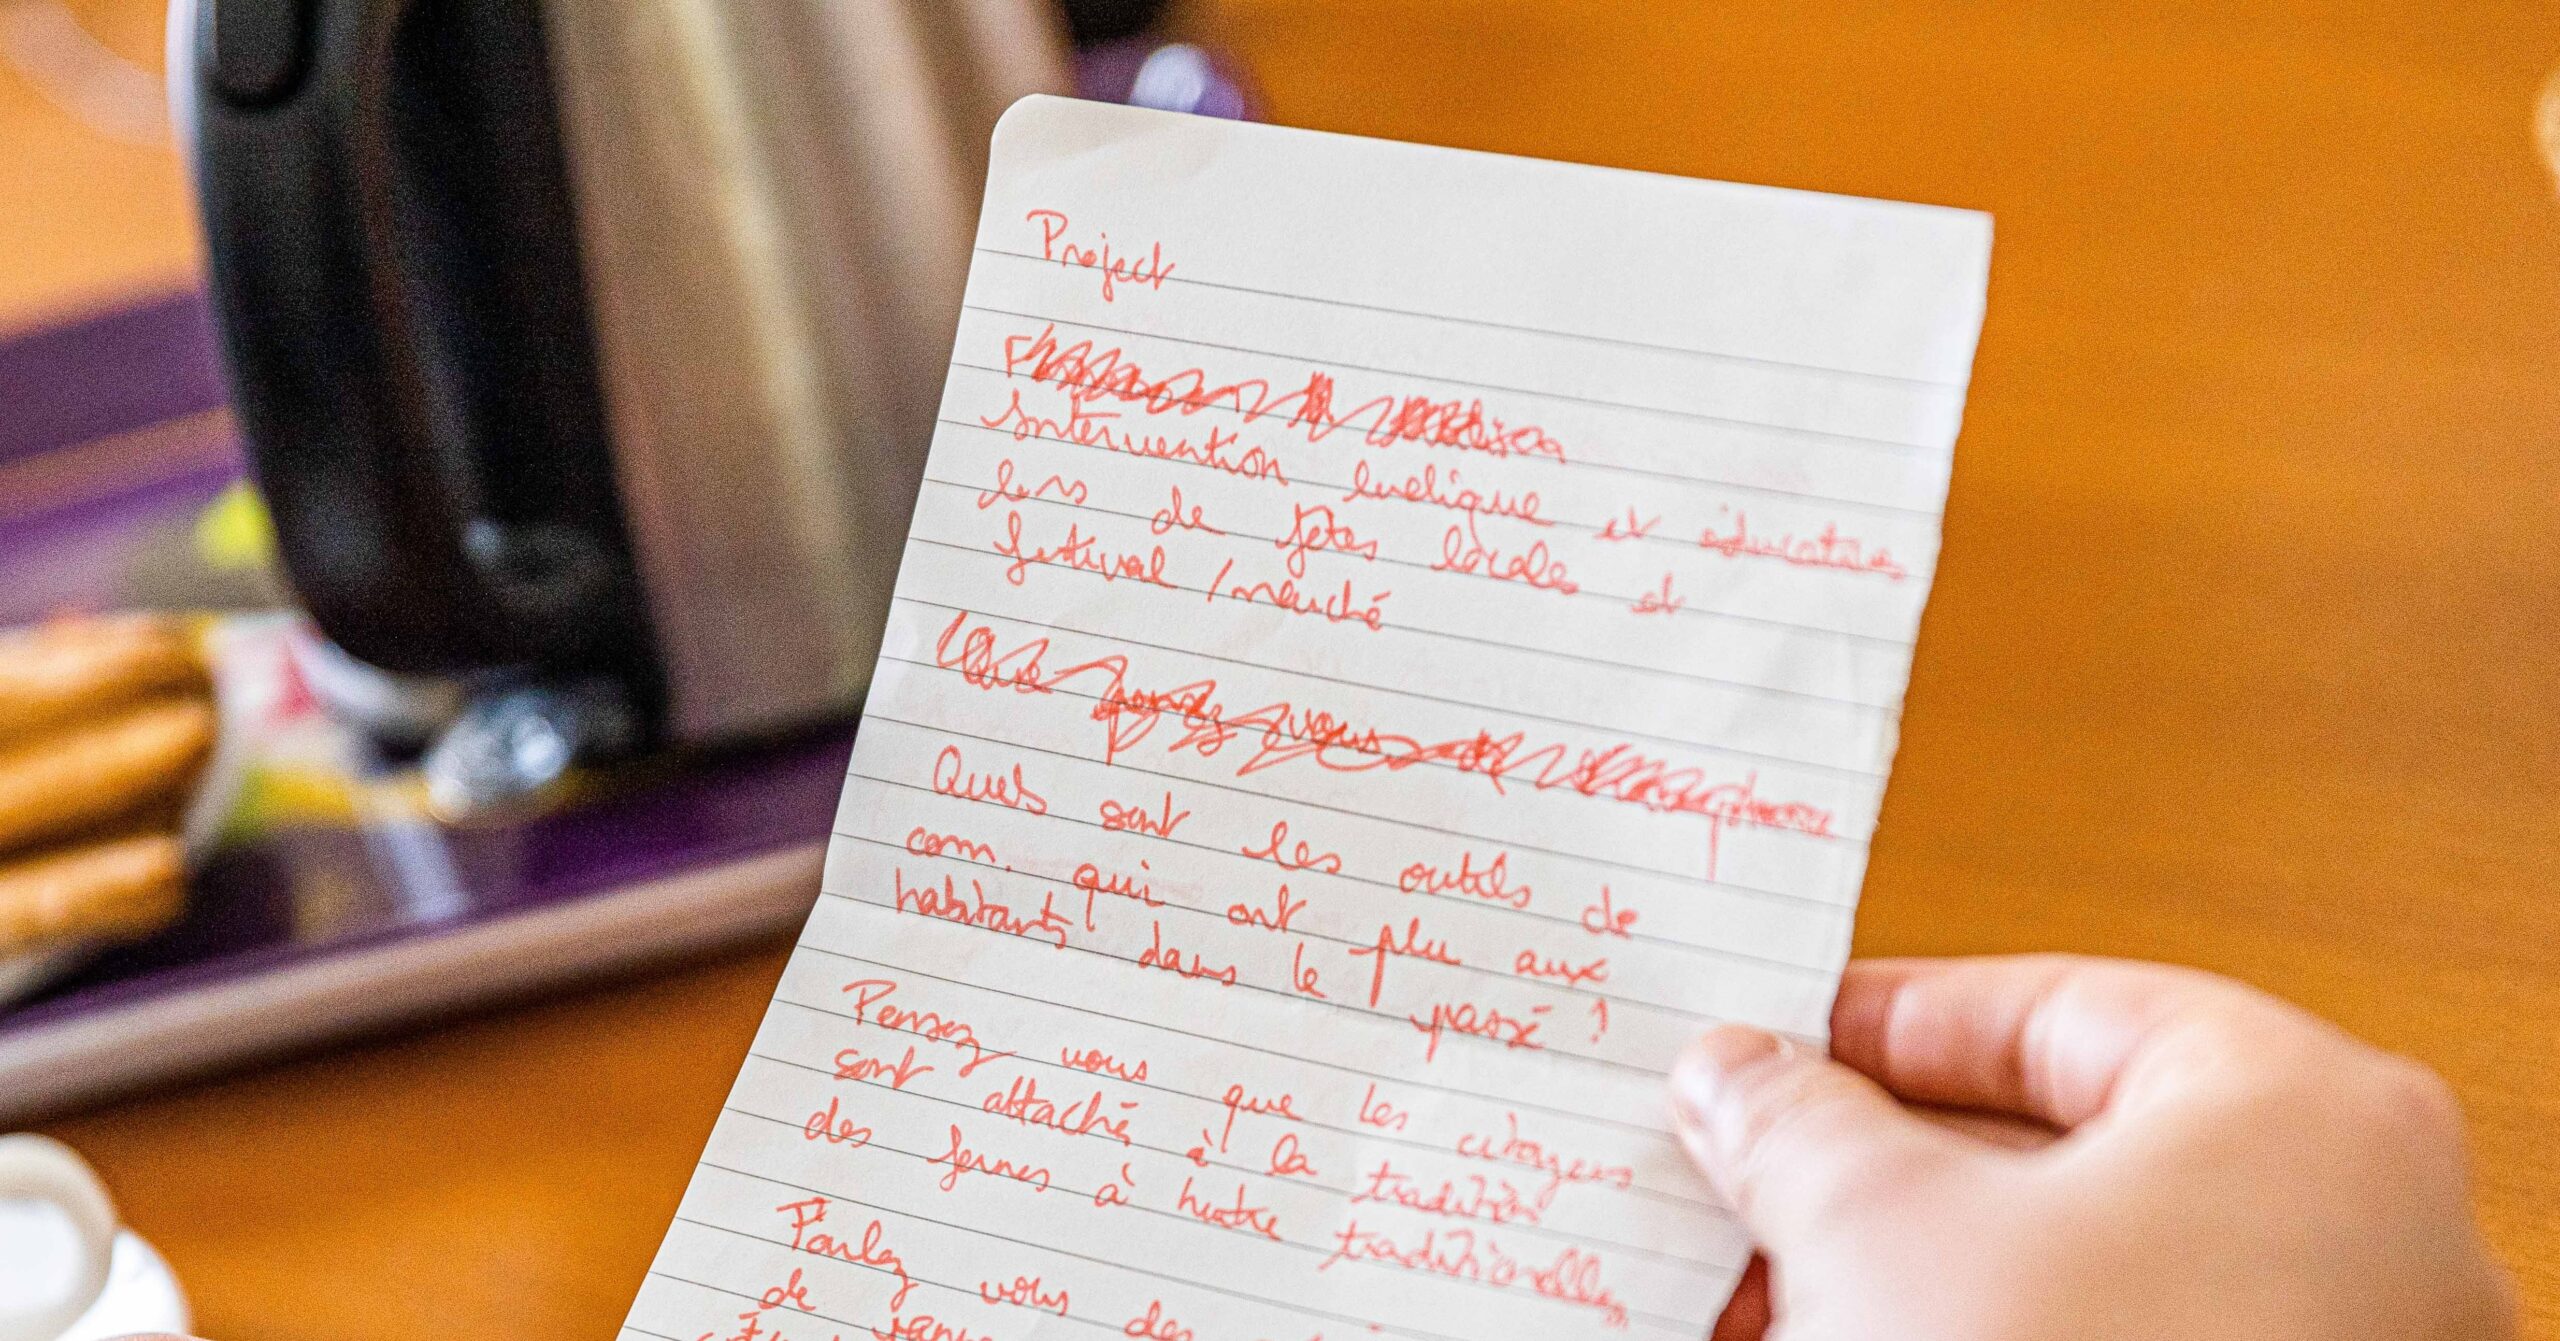 Project
Intervention ludique et éducative
lors de fêtes locales et
festival / marché
Que pensez vous
Quels sont les outils de
com. qui ont plu aux
habitants dans le passé ?
Pensez vous que les citoyens
sont attaché à la tradition
des fermes à traditionelles
Parlez vous des
de